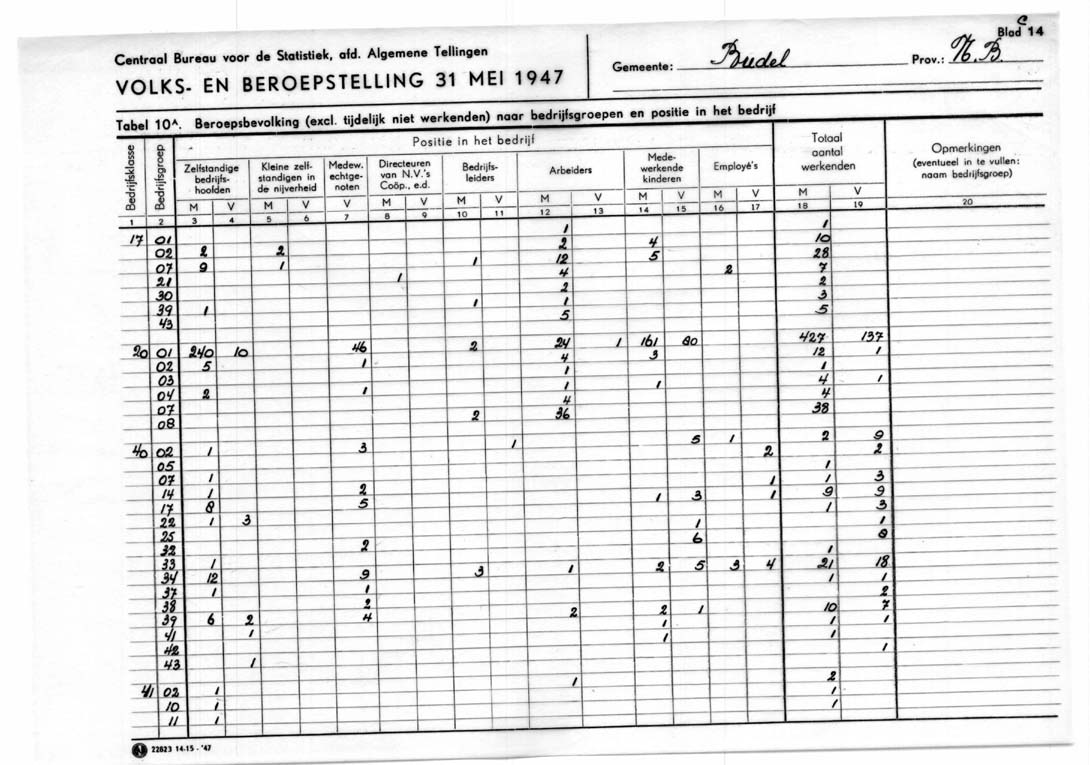 Blad C 14
Centraal Bureau voor de Statistiek, afd. Algemene Tellingen
VOLKS- EN BEROEPSTELLING 31 MEI 1947
Gemeente: Budel Prov.: N.B.
Tabel 10A. Beroepsbevolking (excl. tijdelijk niet werkenden) naar bedrijfsgroepen en positie in het bedrijf
Bedrijfsklasse
Bedrijfsgroep
Positie in het bedrijf
Zelfstandige bedrijfs- hoofden
Kleine zelf- standigen in de nijverheid
Medew. echtge- noten
Directeuren van N.V.'s Coöp., e.d.
Bedrijfs- leiders
Arbeiders
Mede- werkende kinderen
Employé's
Totaal aantal werkenden
Opmerkingen (eventueel in te vullen: naam bedrijfsgroep)
M V M V V M V M V M V M V M V M V
1 2 3 4 5 6 7 8 9 10 11 12 13 14 15 16 17 18 19 20
17 01 1 1
02 2 2 2 4 10
07 9 1 1 12 5 28
21 1 4 2 7
30 2 2
39 1 1 1 3
43 5 5
20 01 240 10 46 2 24 1 161 80 427 137
02 5 1 4 3 12 1
03 1 1
04 2 1 1 1 4 1
07 4 4
08 2 36 38
40 02 1 3 1 5 1 2 9
05 2 2
07 1 1
14 1 2 1 1 3
17 8 5 1 3 1 9 9
22 1 3 1 3
25 1 1
32 2 6 8
33 1 1
34 12 9 3 1 2 5 3 4 21 18
37 1 1 1 1
38 2 2
39 6 2 4 2 2 1 10 7
41 1 1 1 1
42 1 1
43 1 1
41 02 1 1 2
10 1 1
11 1 1
N 22823 14-15 - '47